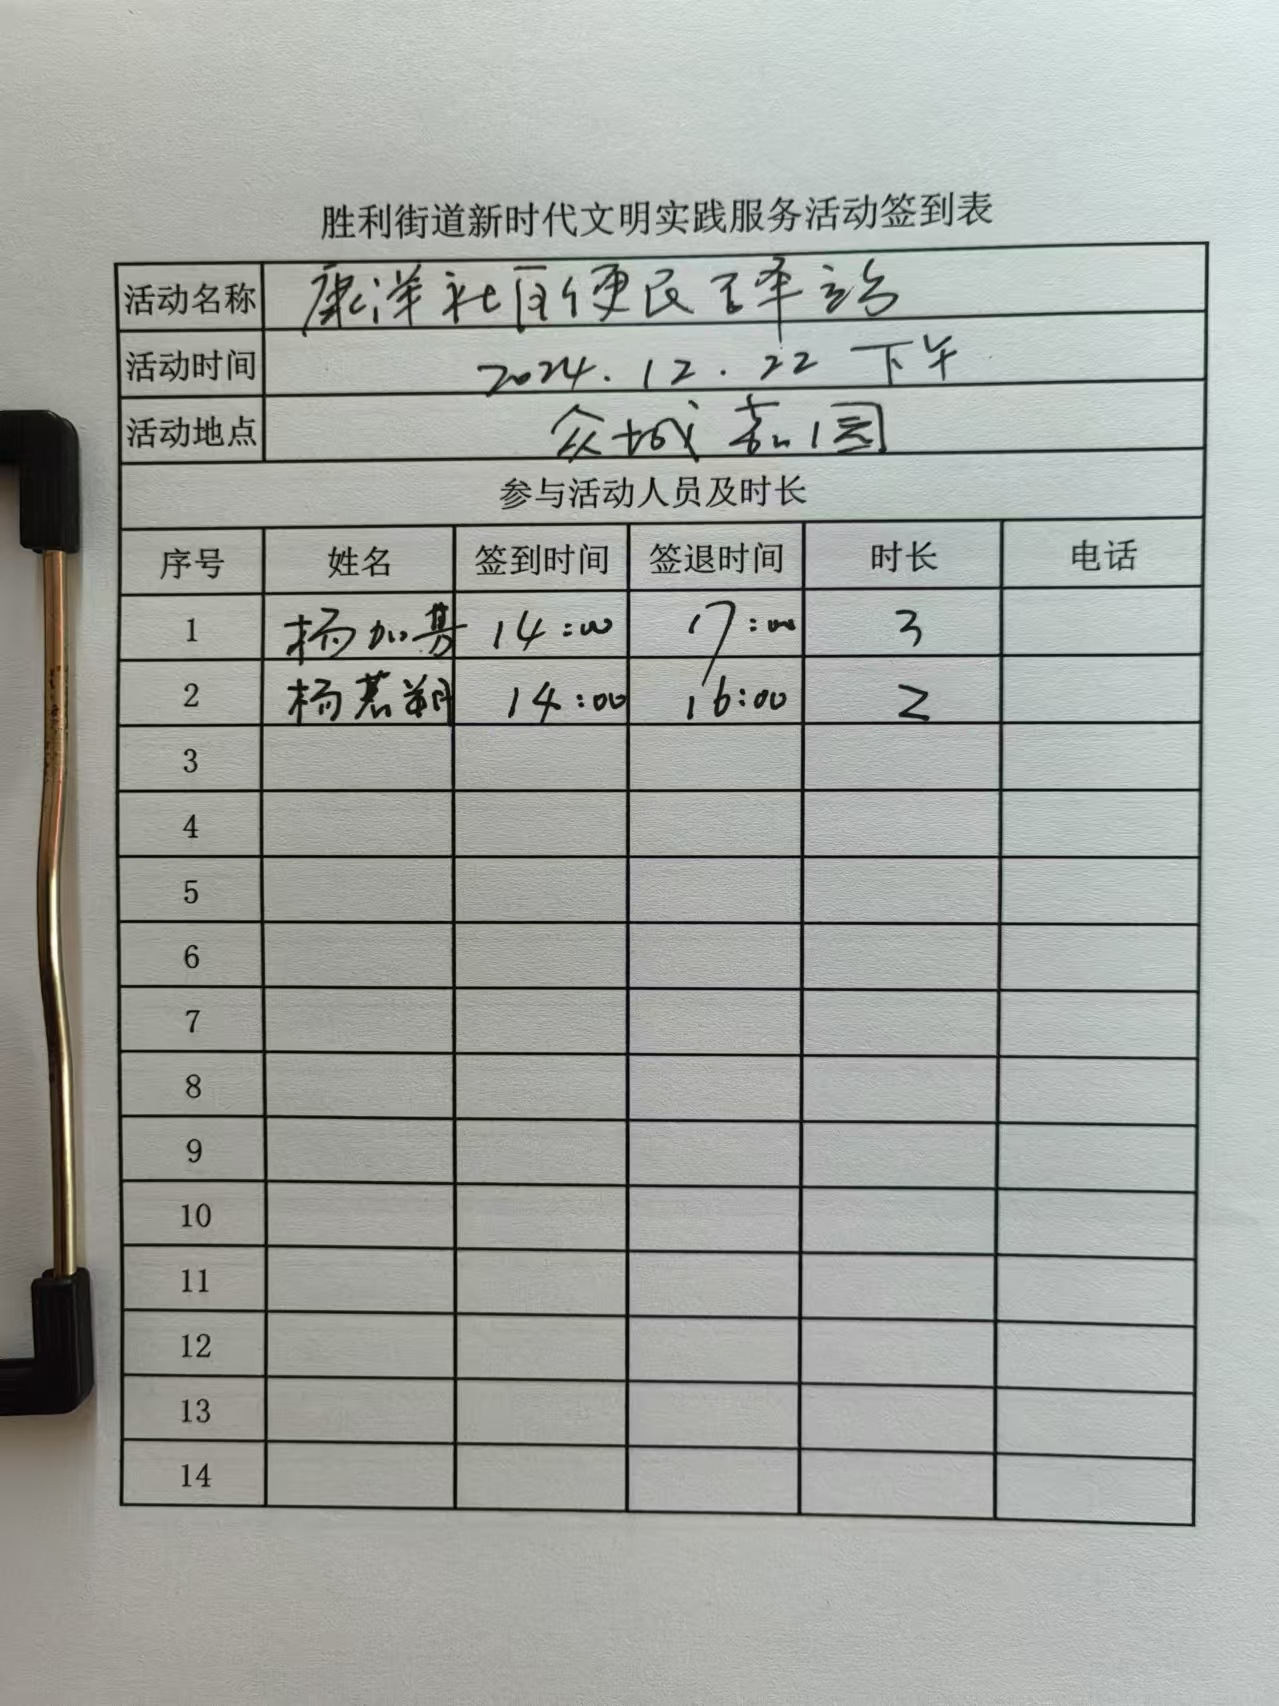 胜利街道新时代文明实践服务活动签到表
活动名称 康洋社区便民驿站
活动时间 2024.12.22 下午
活动地点 众城嘉园
参与活动人员及时长
序号 姓名 签到时间 签退时间 时长 电话
1 杨加 14:00 17:00 3
2 杨慕朔 14:00 16:00 2
3
4
5
6
7
8
9
10
11
12
13
14